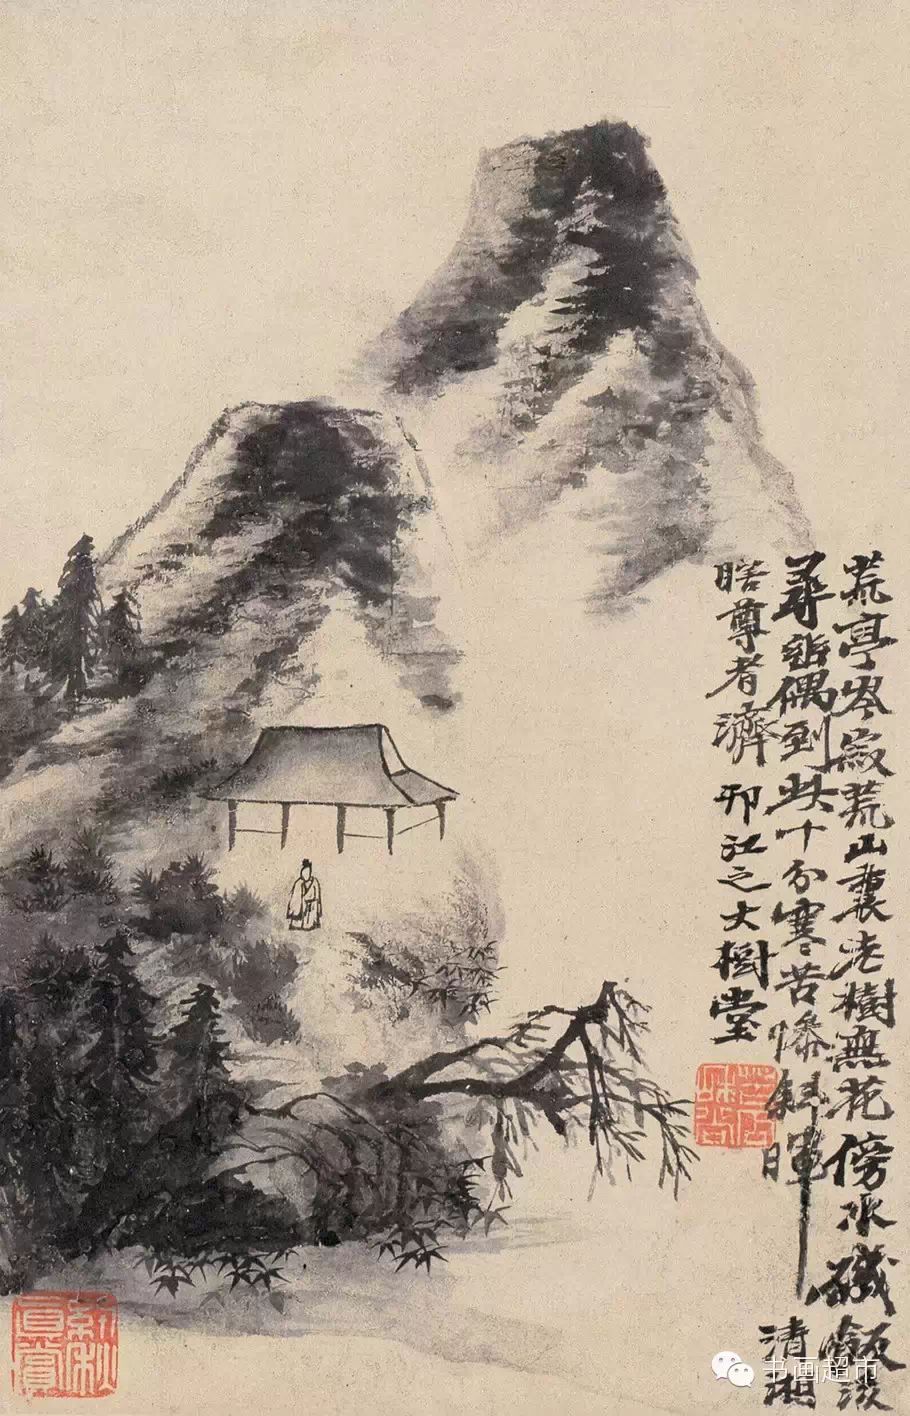 荒亭岑寂荒山裏老樹無花傍水磯飯後
尋偶到此十分寒苦慘斜暉 清湘
瞎尊者濟 邗江之大樹堂
真賞
书画超市